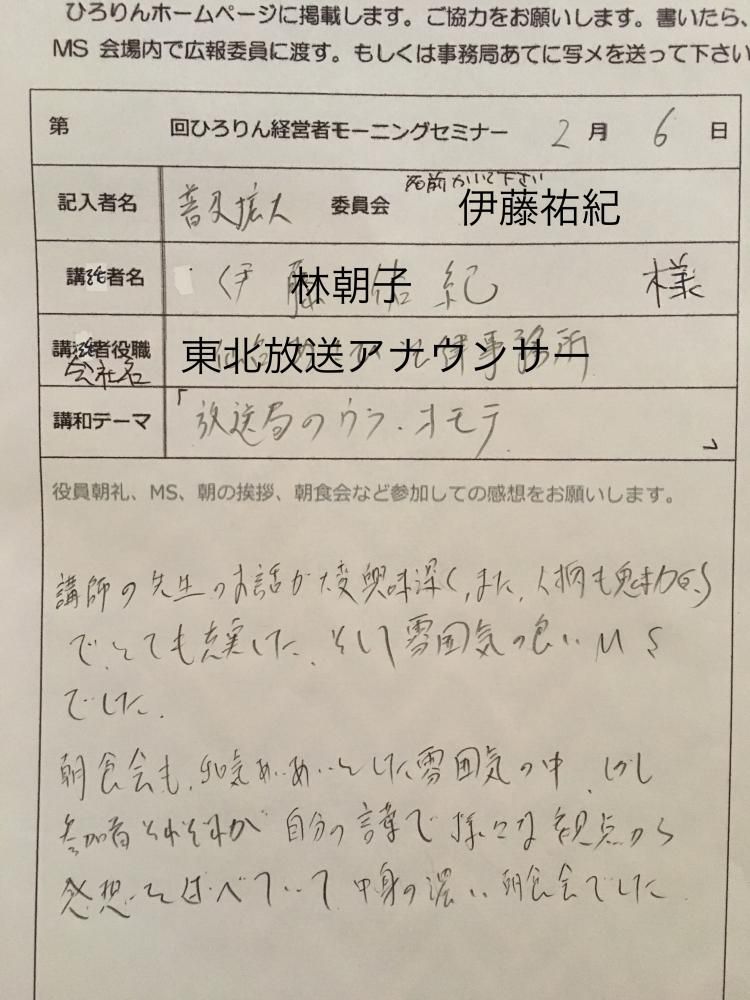 ひろりんホームページに掲載します。ご協力をお願いします。書いたら、
MS 会場内で広報委員に渡す。もしくは事務局あてに写メを送って下さい
第 回ひろりん経営者モーニングセミナー 2 月 6 日
名前かいて下さい
記入者名 普及拡大 委員会 伊藤祐紀
講話者名 林朝子 様
講話者役職 東北放送アナウンサー
会社名
講和テーマ 「放送局のウラ・オモテ 」
役員朝礼、MS、朝の挨拶、朝食会など参加しての感想をお願いします。
講師の先生のお話が大変興味深く、また、人柄も魅力的
で、とても充実した、そして雰囲気の良いMS
でした。
朝食会も、和気あいあいとした雰囲気の中、しかし
参加者それぞれが自分の言葉で様々な観点から
感想を述べていて中身の濃い朝食会でした